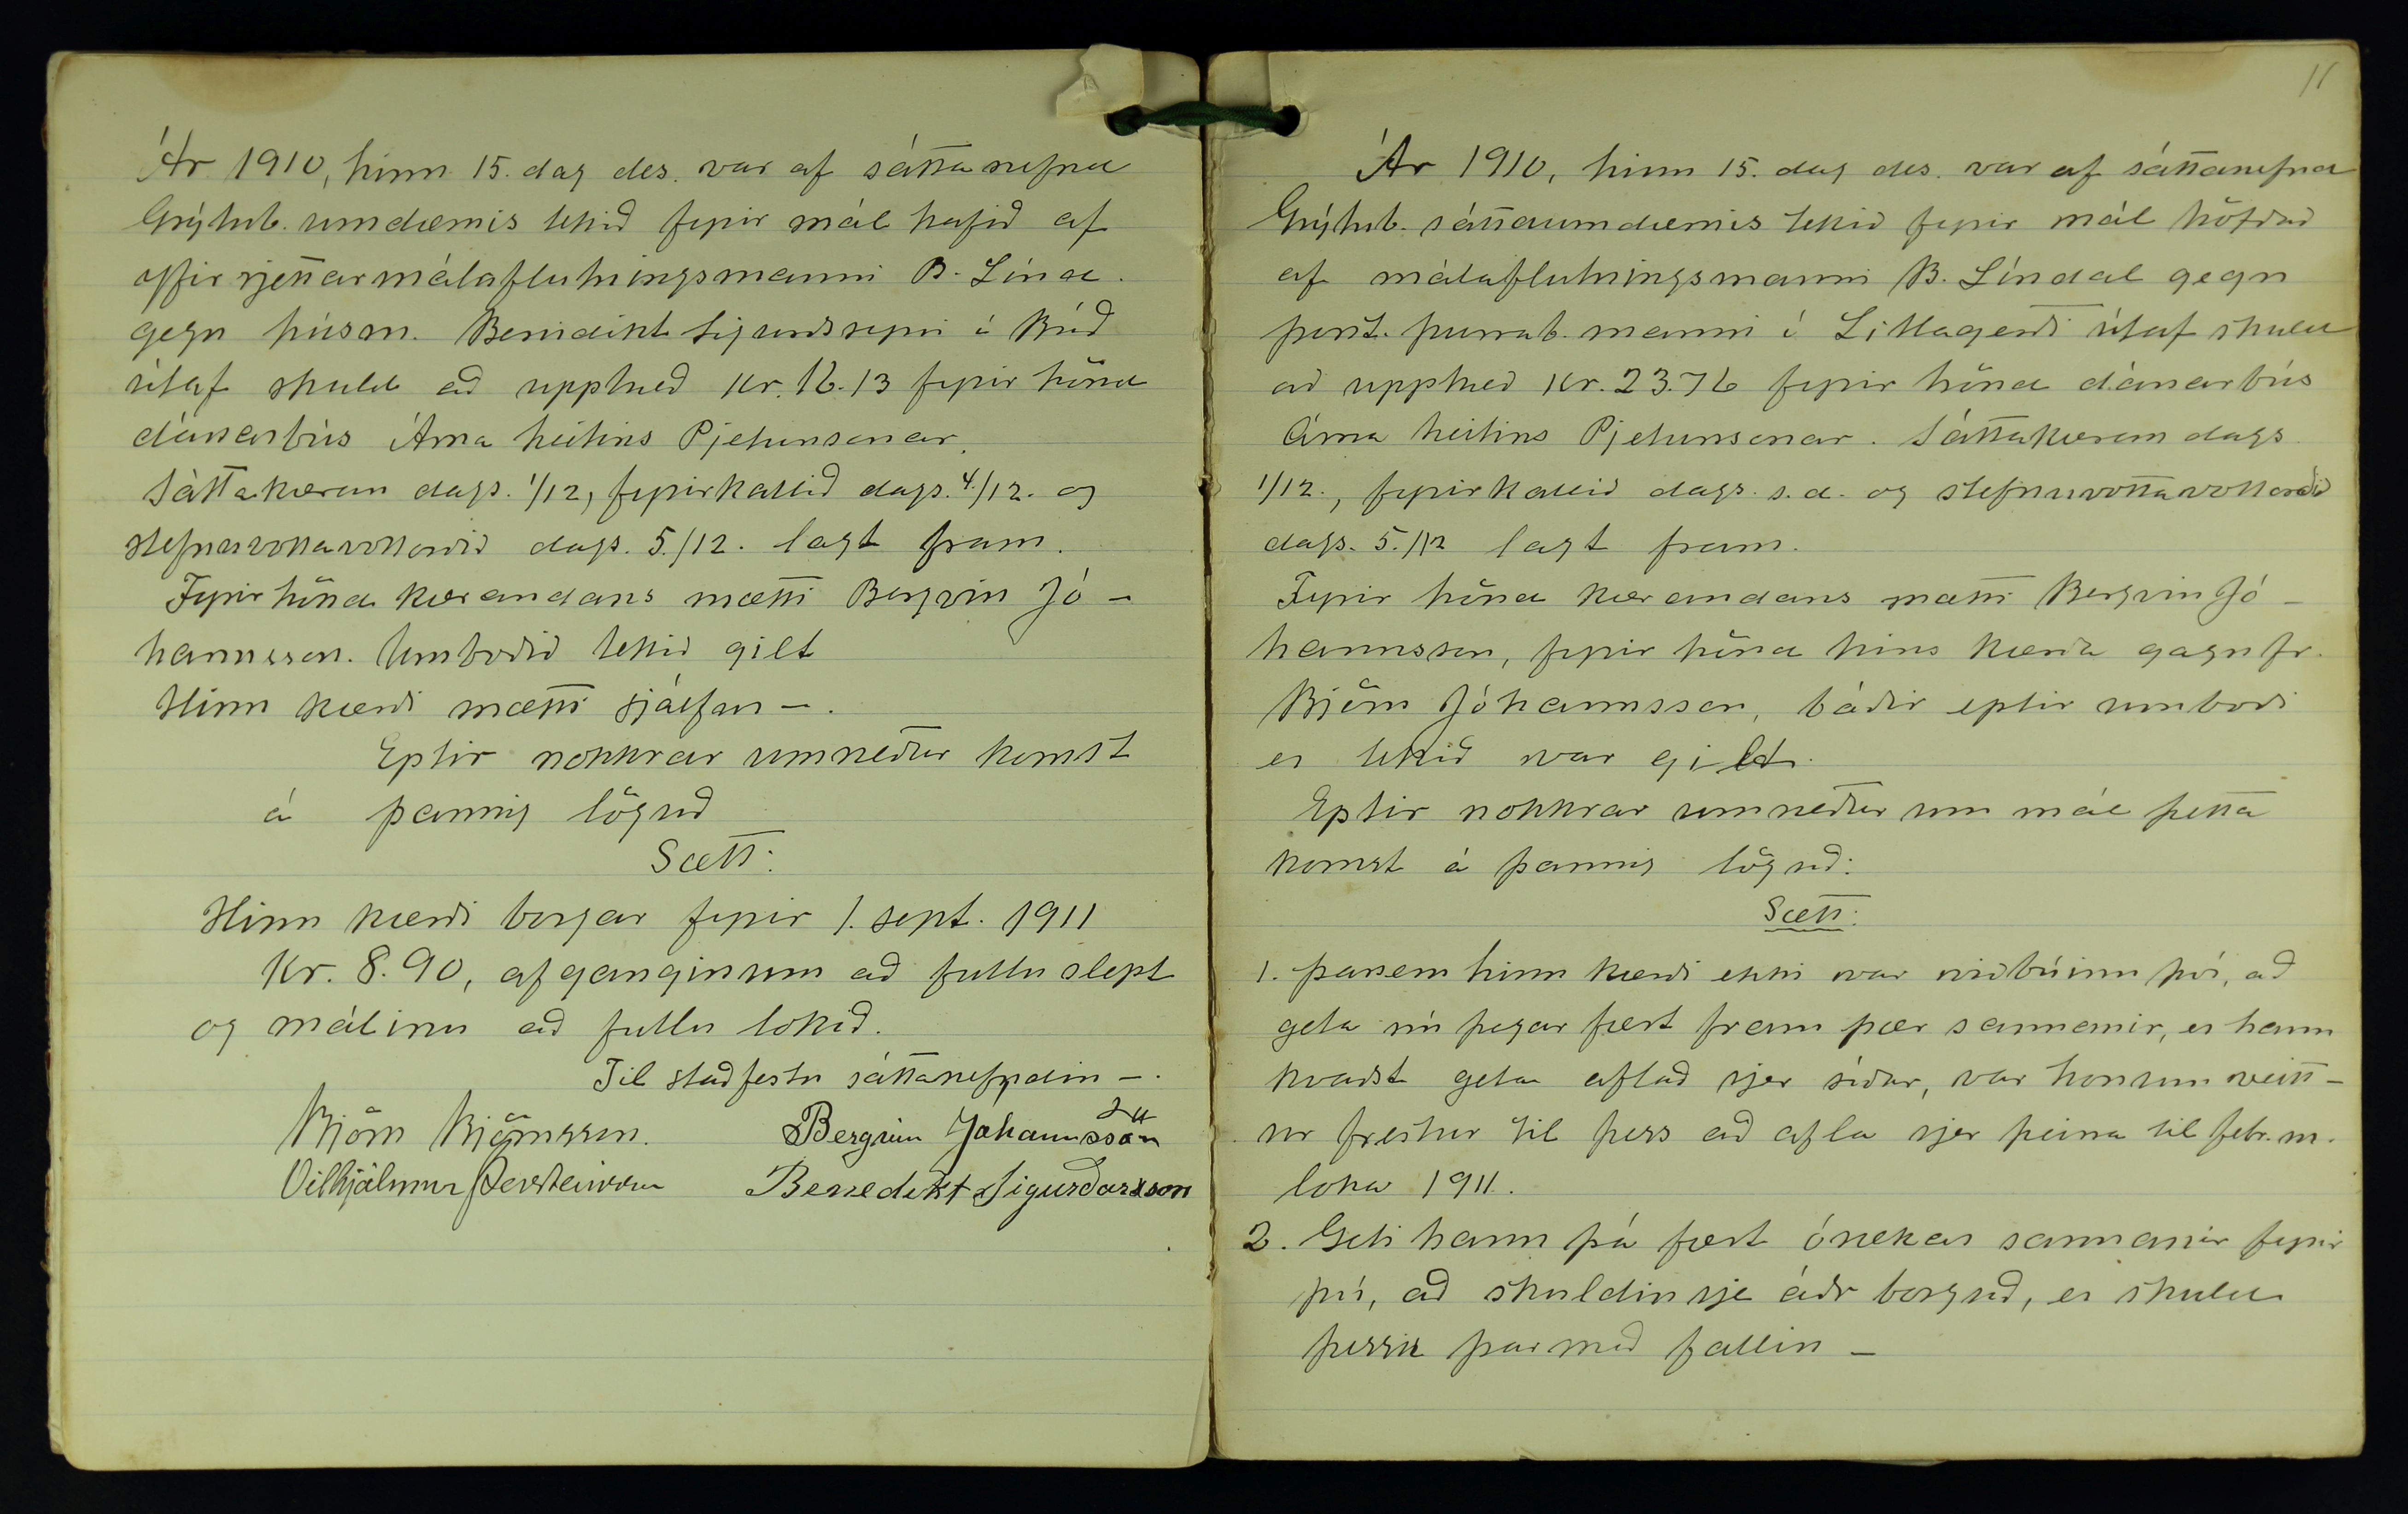 Ár 1910, hinn 15. dag des. var af sáttanefnd
Grýtub. umdæmis tekið fyrir mál hafið af
yfirrjettarmálaflutningsmanni B. Línd.
gegn húsm. Benidikt Sigurdssyni í Búð
útaf skuld að upphæð kr. 16.13 fyrir hönd
dánarbús Árna heitins Pjeturssonar.
Sáttakæran dags. 1/12, fyrirkallið dags. 4./12. og
stefnuvottavottorðið dags. 5./12. lagt fram.
Fyrir hönd kærandans mætti Bergvin Jó-
hannsson. Umboðið tekið gilt
Hinn kærði mætti sjálfur -.
Eptir nokkrar umræður komst
á þannig löguð
Sætt:
Hinn kærði borgar fyrir 1. sept. 1911
Kr. 8.90, afganginum að fullu slept
og málinu að fullu lokið.
Til staðfestu sáttanefndin -.
Björn Björnsson. Bergvin Johannsson
Vilhjálmur Þorsteinsson Benedikt Sigurðarsson
11
Ár 1910, hinn 15. dag des. var af sáttanefnd
Grýtub. sáttaumdæmis tekið fyrir mál höfðað
af málaflutningsmanni B. Líndal gegn
þurrab. manni í Litlagerði útaf skuld
að upphæð kr. 23.76 fyrir hönd dánarbús
Árna heitins Pjeturssonar. Sáttakæran dags.
1/12., fyrirkallið dags. s.d. og stefnuvottavottorðið
dags. 5./12 lagt fram.
Fyrir hönd kærandans mætti Bergvin Jó-
hannsson, fyrir hönd hins kærða gagnfr.
Björn Jóhannsson, báðir eptir umboði
er tekið var gilt.
Eptir nokkrar umræður um mál þetta
komst á þannig löguð:
Sætt:
1. Þarsem hinn kærði ekki var viðbúinn því, að
geta nú þegar fært fram þær sannanir, er hann
kvaðst geta aflað sjer síðar, var honum veitt-
ur frestur til þess að afla sjer þeirra til febr. m.
loka 1911.
2. Geti hann þá fært órækar sannanir fyrir
því, að skuldin sje áðr borguð, er skuld
þessi þarmeð fallin -